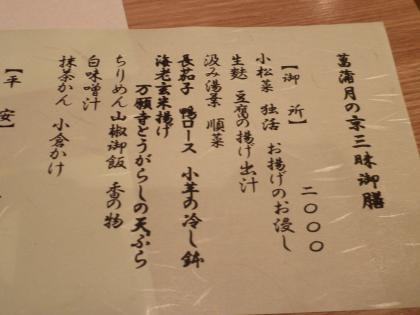 菖蒲月の京三昧御膳
【御所】 二〇〇〇
小松菜 独活 お揚げのお浸し
生麩 豆腐の揚げ出汁
汲み湯葉 順菜
長茄子 鴨ロース 小芋の冷し鉢
海老玄米揚げ
万願寺とうがらしの天ぷら
ちりめん山椒御飯 香の物
白味噌汁
抹茶かん 小倉かけ
【平安】